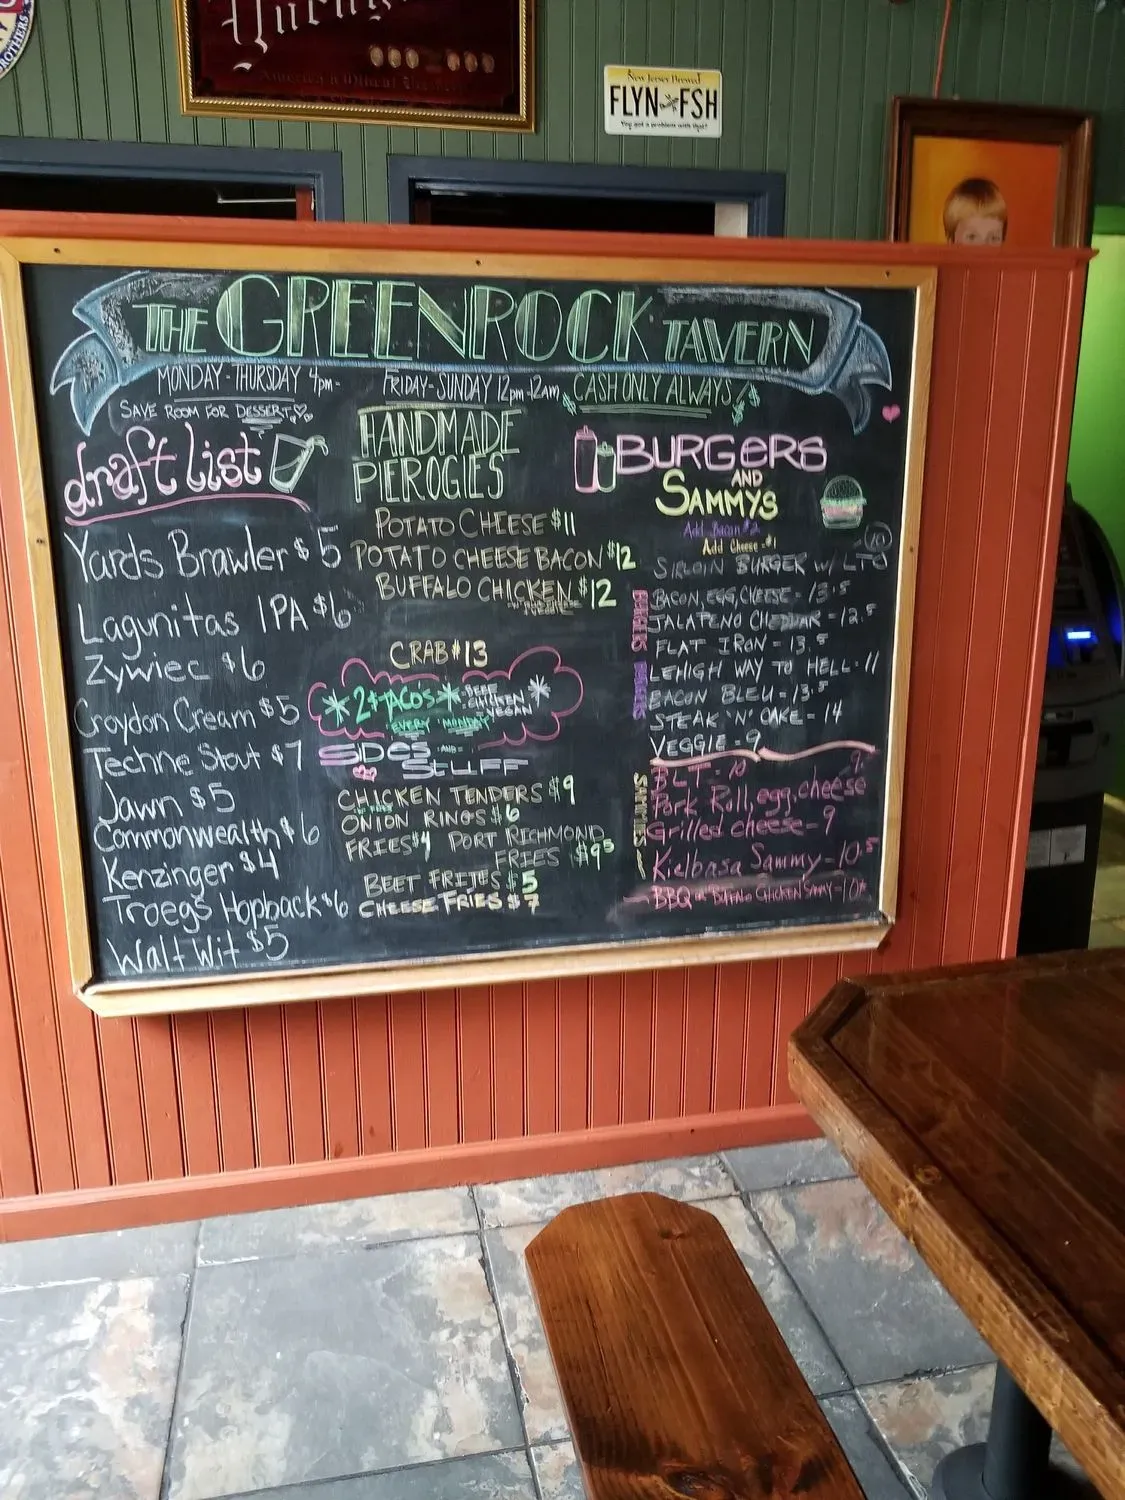 BROTHERS
New Jersey Brewed
FLYN FSH
You got a problem with that?
THE GREENROCK TAVERN
MONDAY-THURSDAY 4pm-
FRIDAY-SUNDAY 12pm-12am
CASH ONLY ALWAYS
SAVE ROOM FOR DESSERT
draft list
Yards Brawler $5
Lagunitas IPA $6
Zywiec $6
Croydon Cream $5
Techne Stout $7
Jawn $5
Commonwealth $6
Kenzinger $4
Troegs Hopback $6
Walt Wit $5
HANDMADE
PIEROGIES
POTATO CHEESE $11
POTATO CHEESE BACON $12
BUFFALO CHICKEN $12
CRAB $13
2$ TACOS
BEEF
CHICKEN
VEGAN
EVERY MONDAY
SIDES AND
STUFF
CHICKEN TENDERS $9
ONION RINGS $6
FRIES $4 PORT RICHMOND
FRIES $9.5
BEET FRIES $5
CHEESE FRIES $7
BURGERS
AND
SAMMYS
Add Bacon $2
Add Cheese $1
SIRLOIN BURGER w/ LTO 10
BURGERS
BACON, EGG, CHEESE - 13.5
JALAPENO CHEDDAR - 12.5
FLAT IRON - 13.5
LEHIGH WAY TO HELL - 11
BACON BLEU - 13.5
STEAK 'N' CAKE - 14
VEGGIE - 9
SAMMYS
BLT - 10
Pork Roll, egg, cheese 9
Grilled cheese - 9
Kielbasa Sammy - 10.5
BBQ or BUFFALO CHICKEN SAMMY - 10